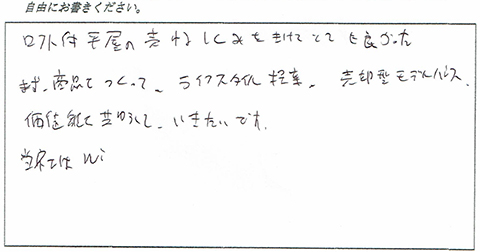 自由にお書きください。
ロフト付平屋の売れるしくみをきけてとても良かった
まず、商品をつくって、ライフスタイル提案、売却型モデルハウス、
価値 して いきたいです。
当社では